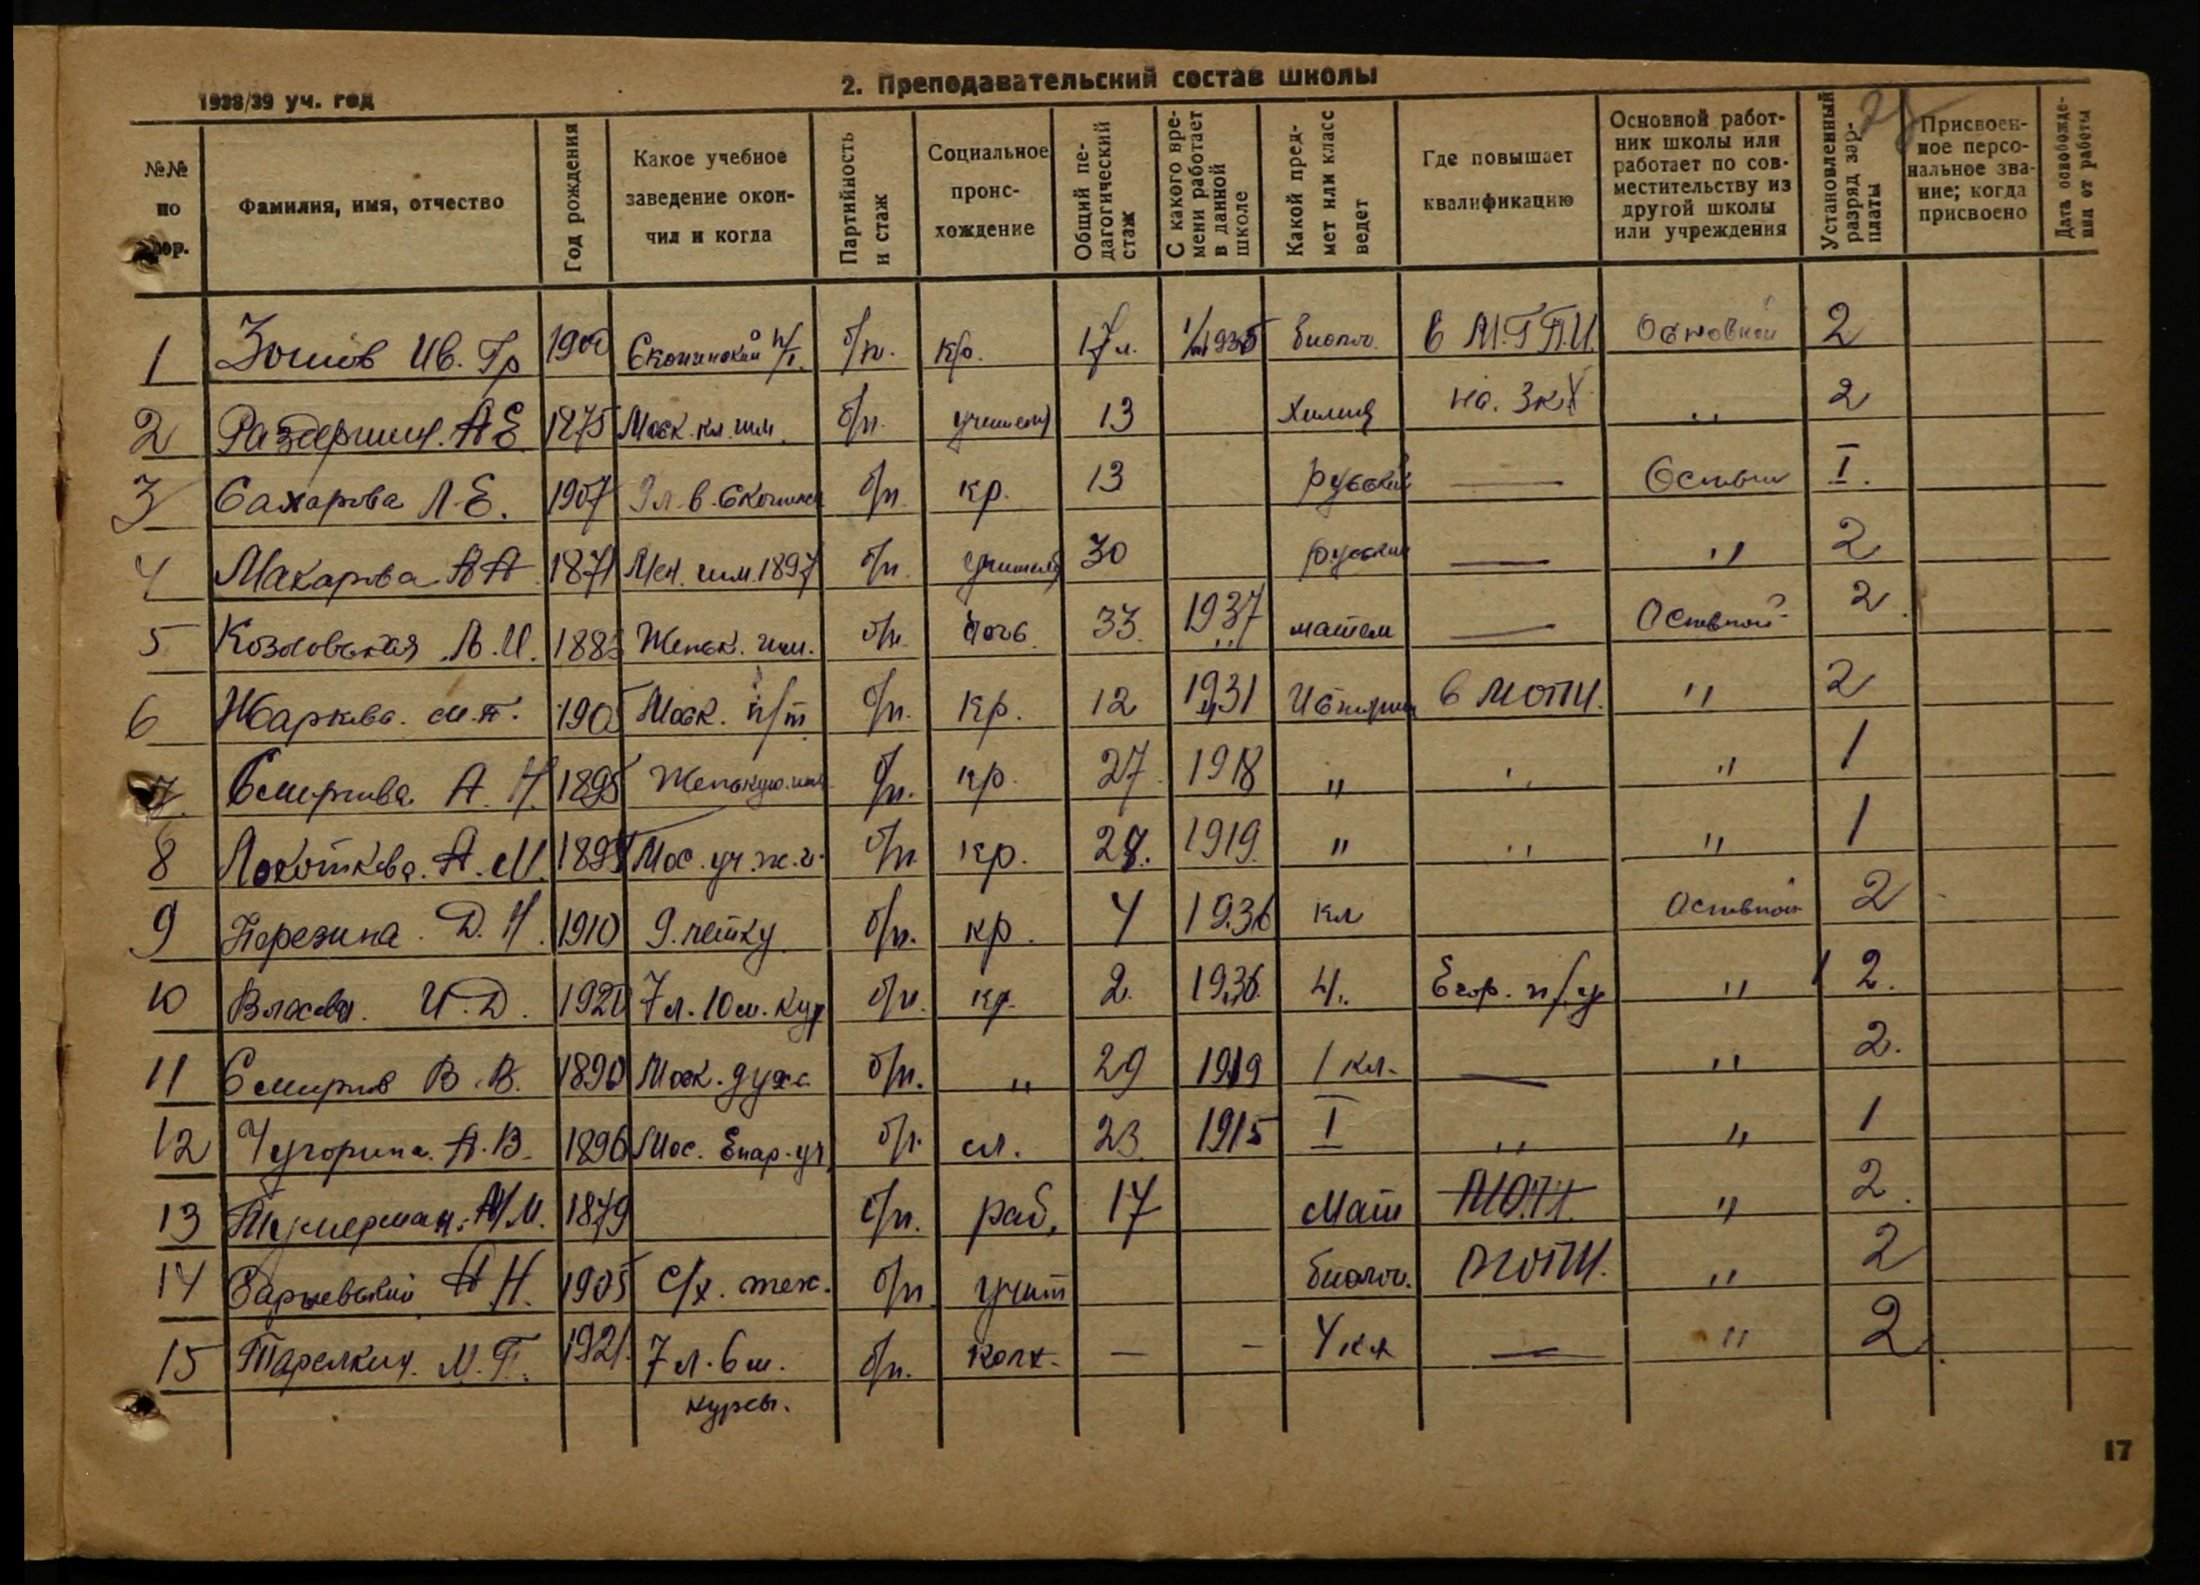 1938/39 уч. год
2. Преподавательский состав школы
№№ по пор.
Фамилия, имя, отчество
Год рождения
Какое учебное заведение окончил и когда
Партийность и стаж
Социальное происхождение
Общий педагогический стаж
С какого времени работает в данной школе
Какой предмет или класс ведет
Где повышает квалификацию
Основной работник школы или работает по совместительству из другой школы или учреждения
Установленный разряд зарплаты
Присвоенное персональное звание; когда присвоено
Дата освобождения от работы
1 Зошов Ив. Гр 1900 Скопинский п/т. б/п. кр. 17 л. биолог. в М.Г.П.И. Основной 2
2 А Е 1875 Моск. кл. гим. б/п. учителя 13 Химия на ЗкХ " 2
3 Сахарова Л. Е. 1907 9 л. в. б/п. кр. 13 русский — I.
4 Макарова А А 1871 гим. 1897 б/п. учитель 30 русский — " 2
5 Козловская Л. И. Женск. гим. б/п. 33. 1937 матем — Основной 2.
6 Жаркова. М. П. 1905 Моск. п/т б/п. кр. 12 1931 История в МОПИ. " 2
7. Смирнова А. Н. 1895 б/п. кр. 27. 1918 " " " 1
8 Локоткова. А. М. Мос. уч. ж. г. б/п кр. 1919 " " " 1
9 Д. Н. 1910 9. летку б/п. кр. 4 1936 кл Основной 2
10 Власова. И. Д. 1920 7 л. 10 м. кур б/п. кр. 2. 1936. 4 Егор. п/у " 2.
11 Смирнов В. В. 1890 Моск. дух. с. б/п. " 29 1919 1 кл. — " 2.
12 Чугорина. А. В. 1896 Мос. Епар. уч б/п. сл. 23 1915 I " " 1
13 М. 1879 б/п. раб. 17 Мат " 2.
14 А Н. 1905 С/х. тех. б/п учит биолог. МОПИ. " 2
15 Тарелкин. М. Г. 1921. 7 л. 6 м. б/п. колх. — — 4 кл — " 2.
курсы.
17